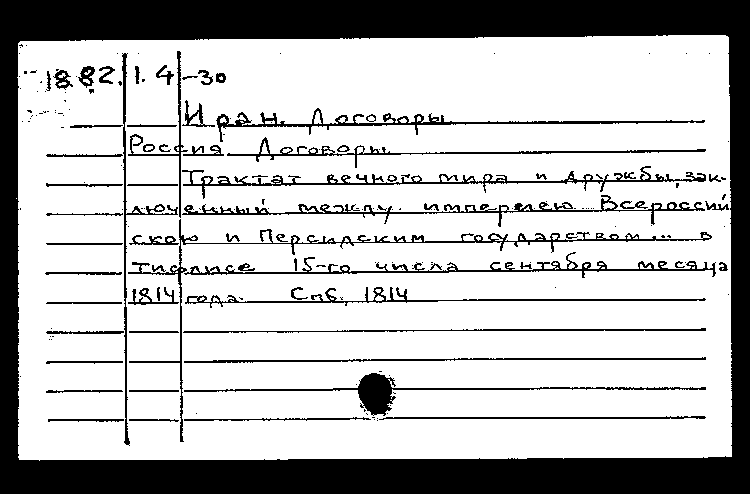 18.82.1.4-30
Иран. Договоры
Россия. Договоры.
Трактат вечного мира и дружбы, зак-
люченный между империею Всероссий
скою и Персидским государством... в
Тифлисе 15-го числа сентября месяца
1814 года. Спб, 1814